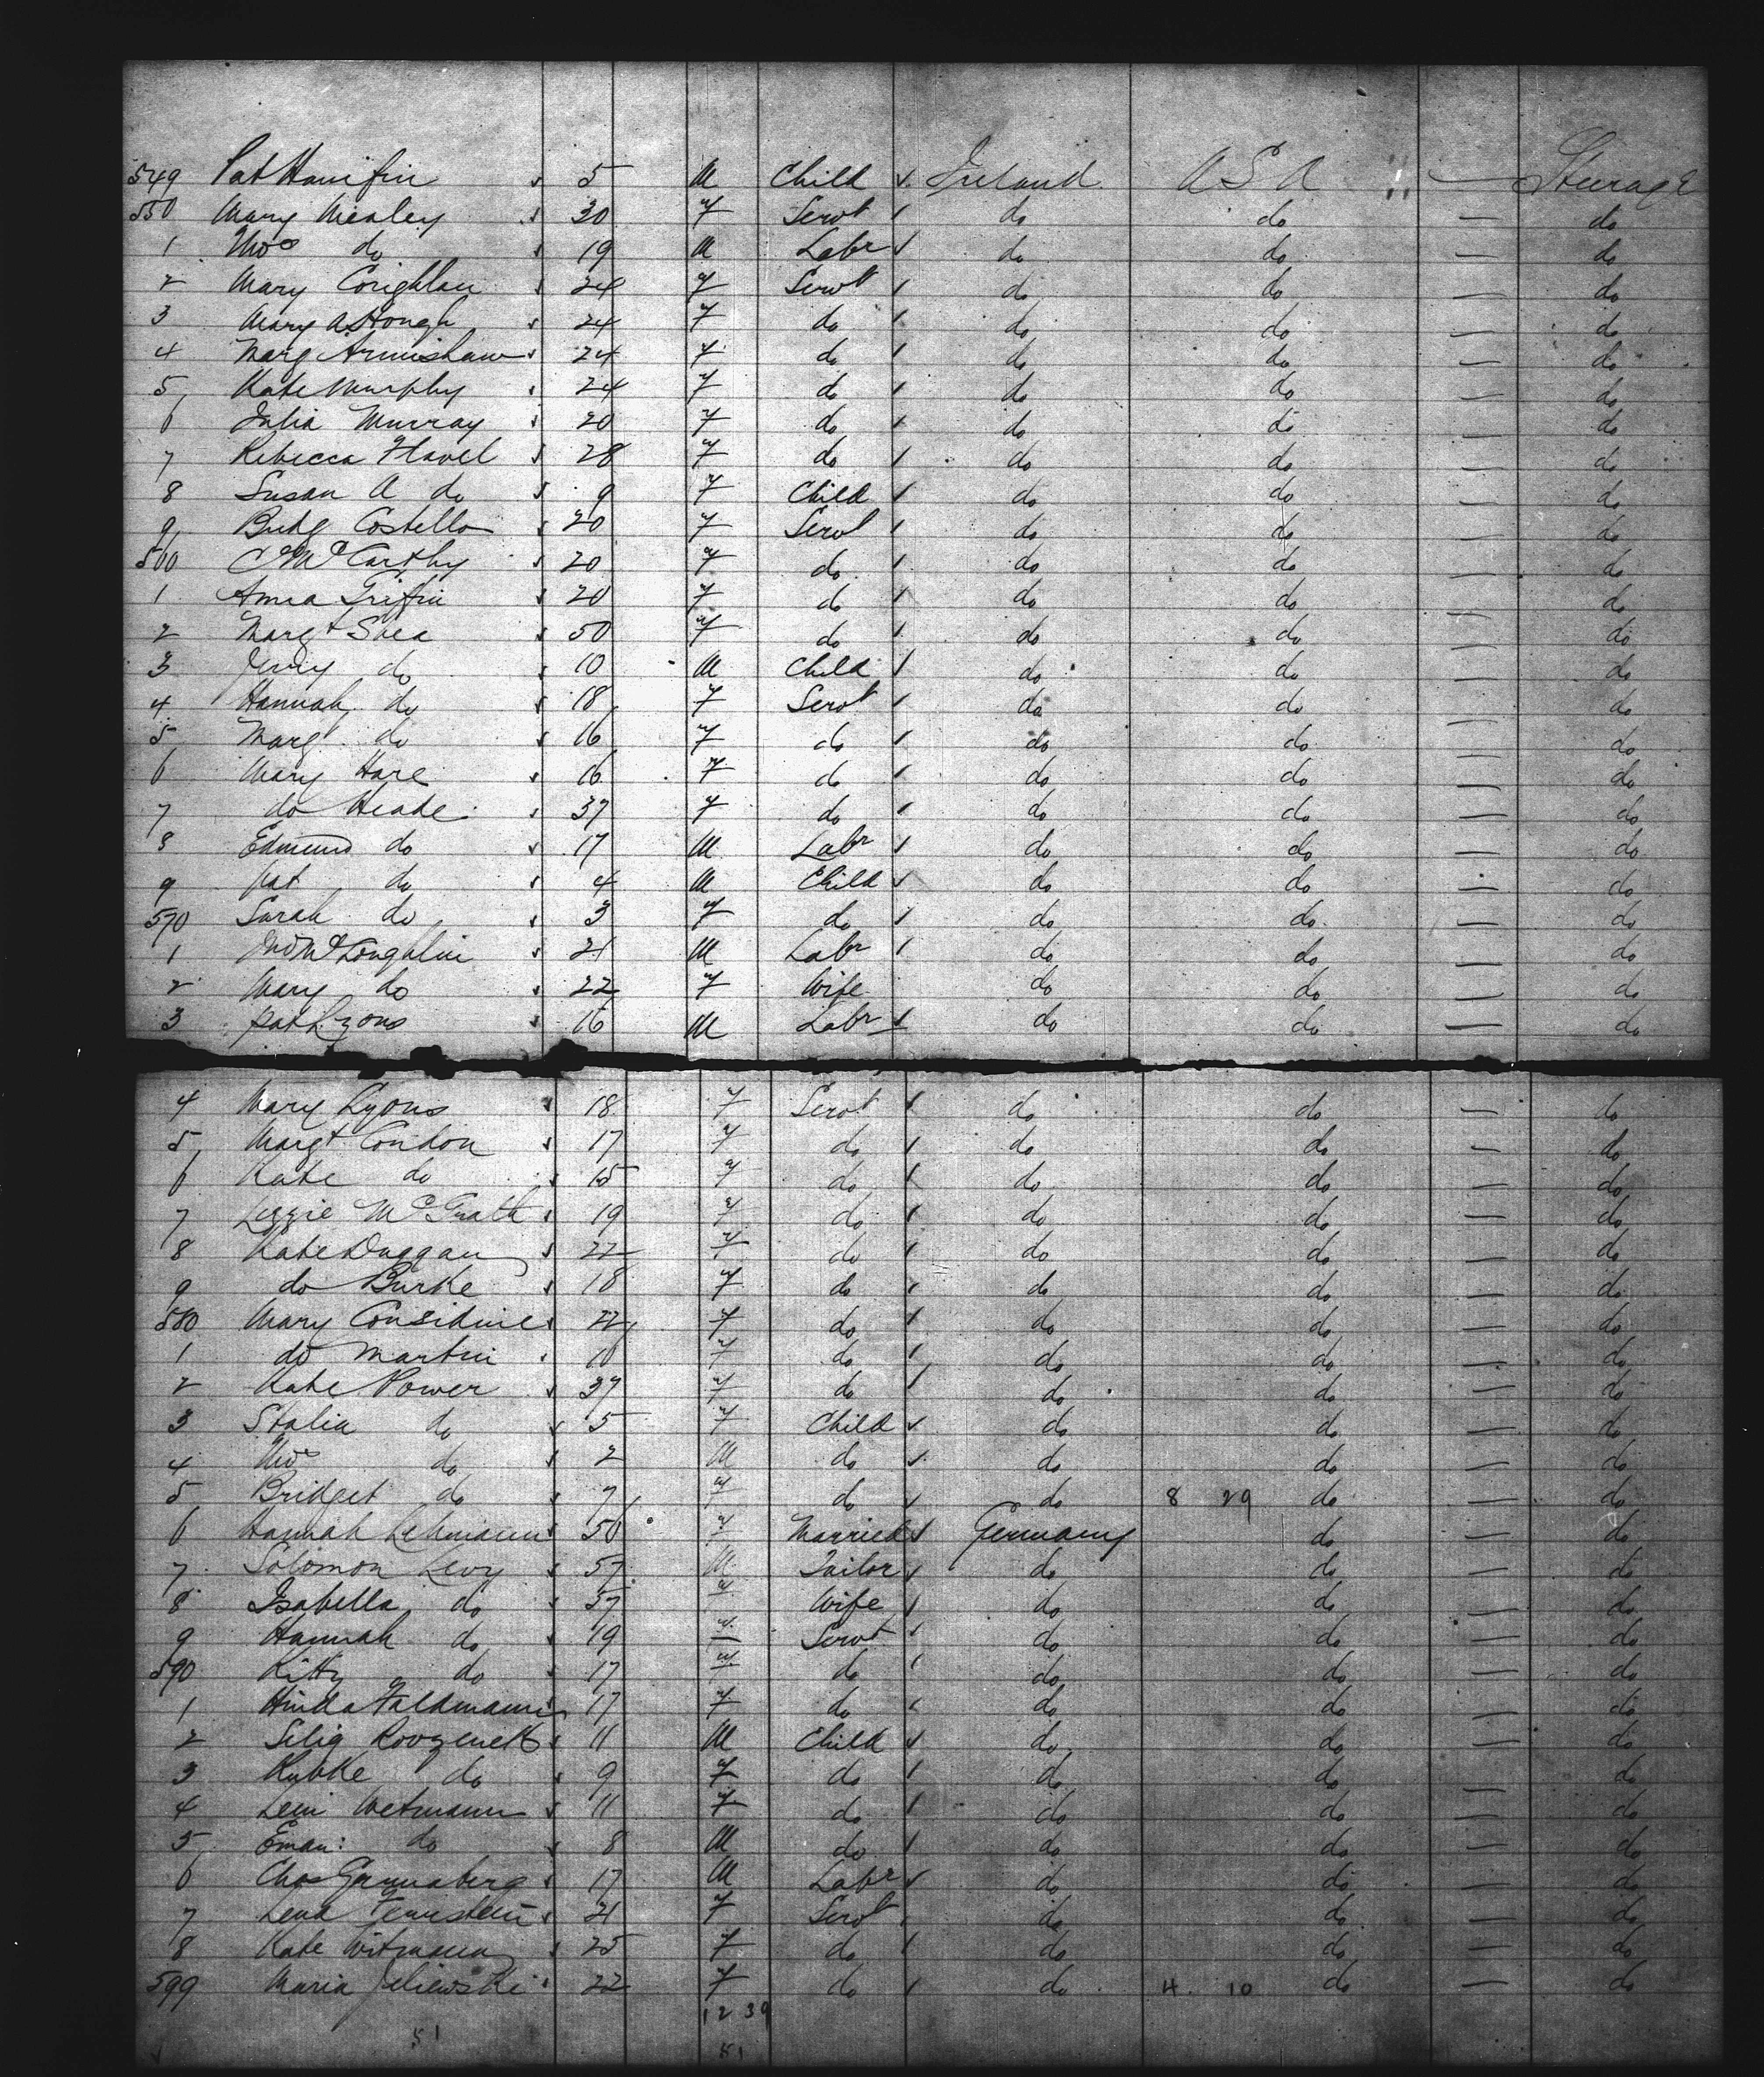 549 Pat Hanifin 5 M Child Ireland U S A — Steerage
550 Mary Mealey 30 F Servt do do — do
1 do 19 M Labr do do — do
2 Mary Coughlan 24 F Servt do do — do
3 Mary A Hough 24 F do do do — do
4 Marg Armishaw 24 F do do do — do
5 Kate Murphy 24 F do do do — do
6 Julia Murray 20 F do do do — do
7 Rebecca Flavel 28 F do do do — do
8 Susan A do 9 F Child do do — do
9 Bridg Costello 20 F Servt do do — do
560 C McCarthy 20 F do do do — do
1 Anna Griffin 20 F do do do — do
2 Margt Shea 50 F do do do — do
3 Jerry do 10 M Child do do — do
4 Hannah do 18 F Servt do do — do
5 Margt do 16 F do do do — do
6 Mary Hare 16 F do do do — do
7 do Meade 37 F do do do — do
8 Edmund do 17 M Labr do do — do
9 Pat do 4 M Child do do — do
570 Sarah do 3 F do do do — do
1 Jno McLoughlin 21 M Labr do do — do
2 Mary do 22 F Wife do do — do
3 Pat Lyons 16 M Labr do do — do
4 Mary Lyons 18 F Servt do do — do
5 Margt Condon 17 F do do do — do
6 Kate do 15 F do do do — do
7 Lizzie McGrath 19 F do do do — do
8 Kate Duggan 22 F do do do — do
9 do Burke 18 F do do do — do
580 Mary Considine 22 F do do do — do
1 do Martin F do do do — do
2 Kate Power 37 F do do do — do
3 Stalia do 5 F Child do do — do
4 do 2 M do do do — do
5 Bridget do 7 F do do 8 29 do — do
6 Hannah Lehmann 50 F Married Germany do — do
7 Solomon Levy 57 M Tailor do do — do
8 Isabella do 57 F Wife do do — do
9 Hannah do 19 F Servt do do — do
590 Kitty do 17 F do do do — do
1 Hinda Faldmann 17 F do do do — do
2 Selig 11 M Child do do — do
3 Rybke do 9 F do do do — do
4 Leni Wetmann 11 F do do do — do
5 Eman: do 8 M do do do — do
6 Chas Grunaberg 17 M Labr do do — do
7 Lena 21 F Servt do do — do
8 Kate Witmann 25 F do do do — do
599 Maria Jeliewski 22 F do do 4 10 do — do
12 39
51 51